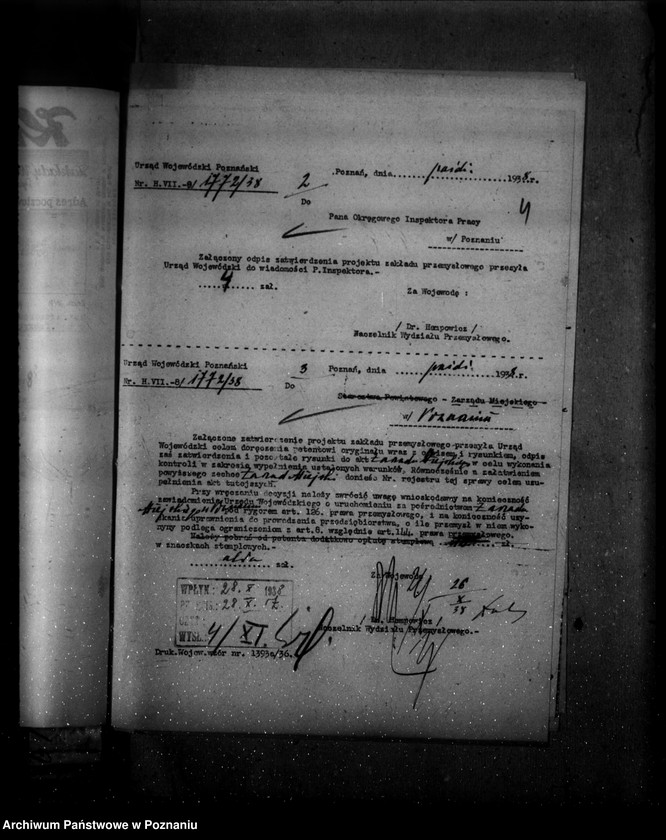 Urząd Wojewódzki Poznański
Poznań, dnia paźdz. 1938.r.
Nr. H.VII.-8/1772/38
2
4
Do
Pana Okręgowego Inspektora Pracy
w/ Poznaniu
Załączony odpis zatwierdzenia projektu zakładu przemysłowego przesyła
Urząd Wojewódzki do wiadomości P.Inspektora.-
4 zał.
Za Wojewodę :
/ Dr. Hempowicz /
Naczelnik Wydziału Przemysłowego.
Urząd Wojewódzki Poznański
3
Poznań, dnia paźdz. 1938.r.
Nr. H.VII.-8/1772/38
Do
Starostwa Powiatowego - Zarządu Miejskiego
w/ Poznaniu
Załączone zatwierdzenie projektu zakładu przemysłowego-przesyła Urząd
Wojewódzki celem doręczenia petentowi oryginału wraz z opisem i rysunkiem, odpis
zaś zatwierdzenia i pozostałe rysunki do akt Zarządu Miejskiego w celu wykonania
kontroli w zakresie wypełnienia ustalonych warunków, Równocześnie z załatwieniem
powyższego zechce Zarząd Miejski donieść Nr. rejestru tej sprawy celem uzu-
pełnienia akt tutejszych.
Przy wręczeniu decyzji należy zwrócić uwagę wnioskodawcy na konieczność
zawiadomienia Urzędu Wojewódzkiego o uruchomieniu za pośrednictwem Zarządu
Miejskiego pod rygorem art. 126. prawa przemysłowego, i na konieczność uzy-
skania uprawnienia do prowadzenia przedsiębiorstwa, o ile przemysł w niem wyko-
nyny podlega ograniczeniom z art.8. względnie art.144. prawa przemysłowego.
Należy pobrać od petenta dodatkowo opłatę stemplową zł.
w znaczkach stemplowych.-
zał.
Za Wojewodę
26
X
38
WPŁYN.: 28. X 1938
28. X.
WYSŁ.: 4/XI
/ Dr. Hempowicz /
Naczelnik Wydziału Przemysłowego.-
Druk.Wojew.wzór nr. 1393a/36.
Archiwum Państwowe w Poznaniu